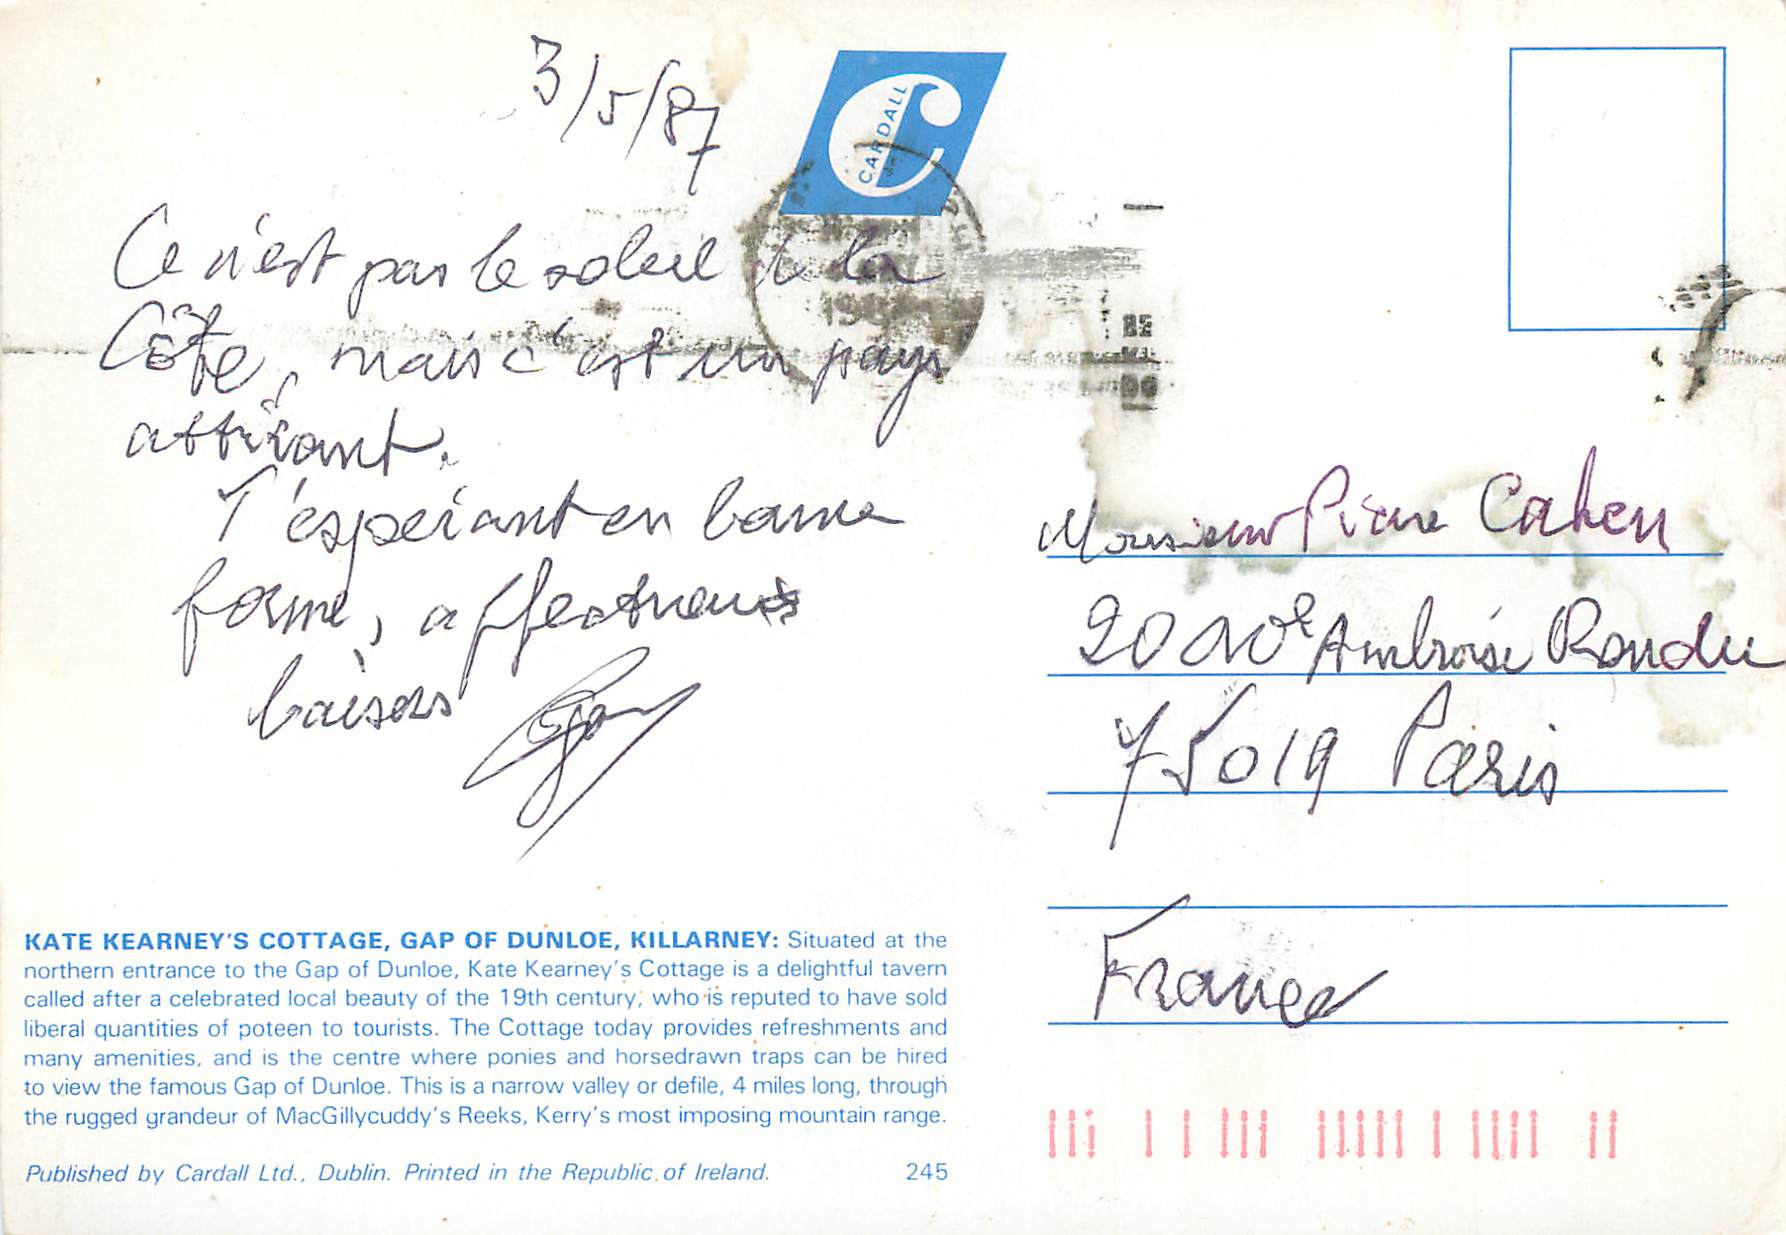 3/5/87
CARDALL
Ce n'est pas le soleil de la
Côte, mais c'est un pays
attirant.
T'espérant en bonne
forme, affectueux
baisers
Monsieur Pierre Cahen
20 Ambroise Rendu
75019 Paris
France
KATE KEARNEY'S COTTAGE, GAP OF DUNLOE, KILLARNEY: Situated at the
northern entrance to the Gap of Dunloe, Kate Kearney's Cottage is a delightful tavern
called after a celebrated local beauty of the 19th century, who is reputed to have sold
liberal quantities of poteen to tourists. The Cottage today provides refreshments and
many amenities, and is the centre where ponies and horsedrawn traps can be hired
to view the famous Gap of Dunloe. This is a narrow valley or defile, 4 miles long, through
the rugged grandeur of MacGillycuddy's Reeks, Kerry's most imposing mountain range.
Published by Cardall Ltd., Dublin. Printed in the Republic of Ireland. 245